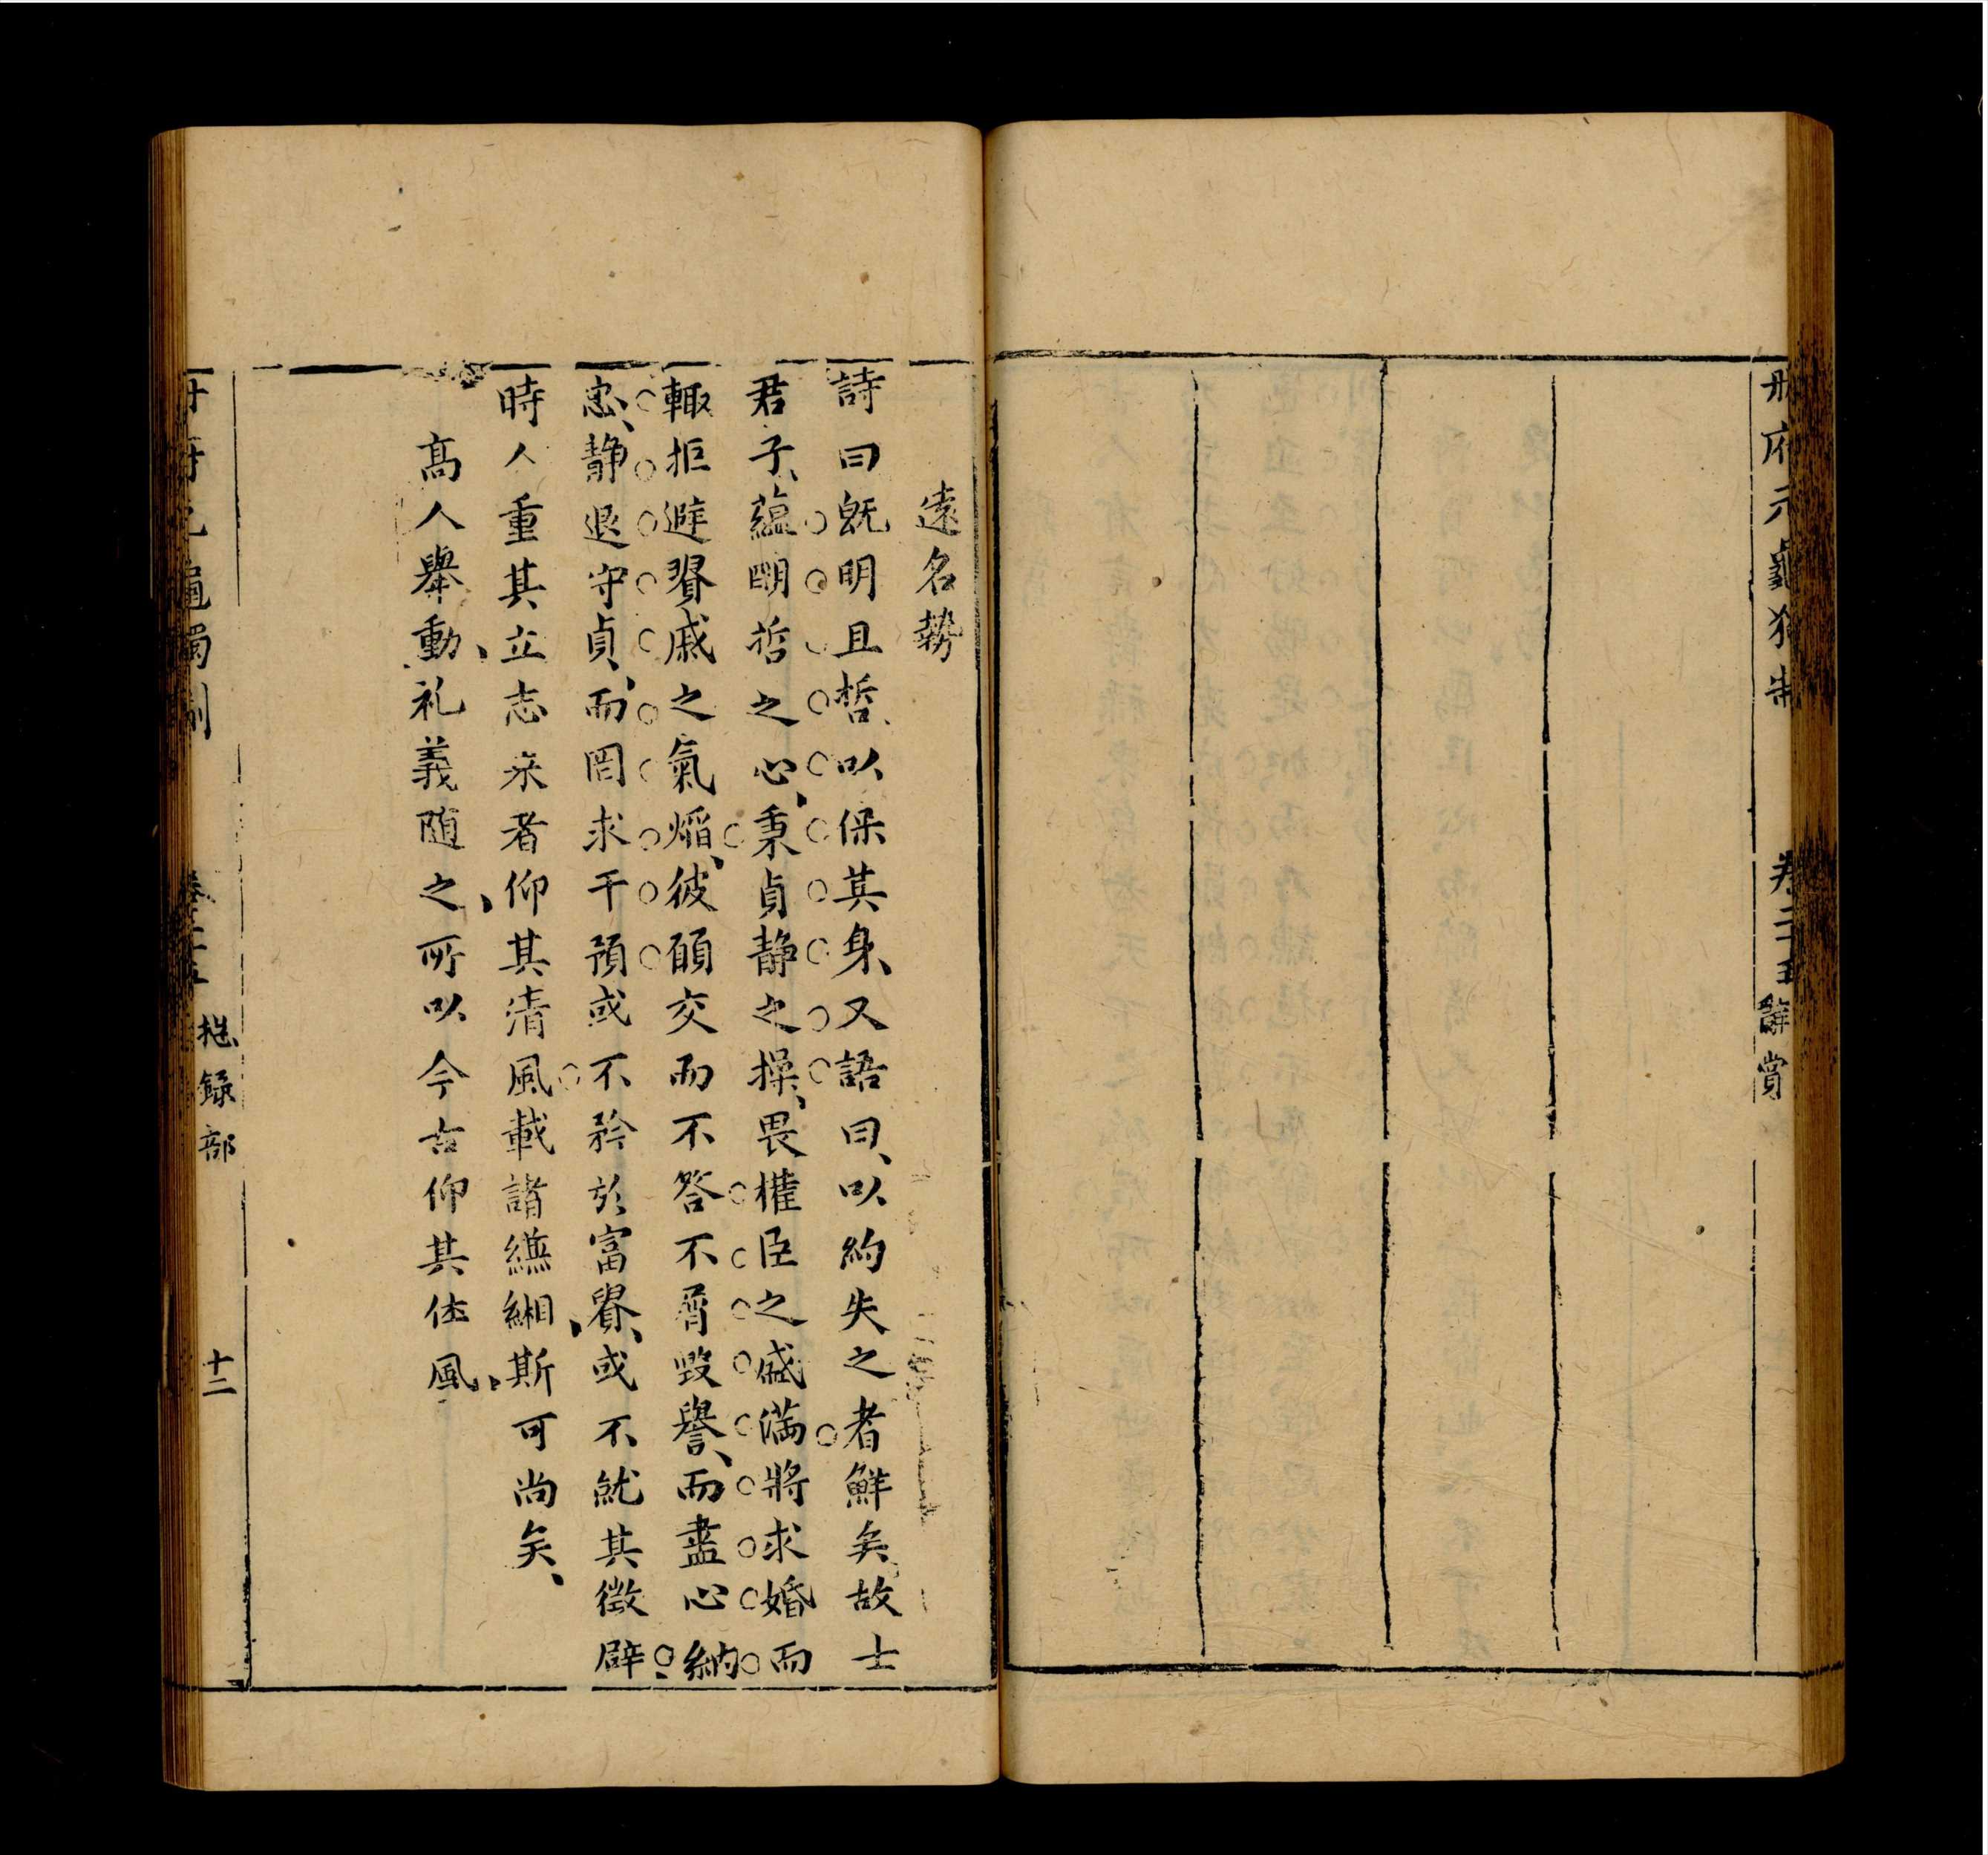 冊府元龜獨制
卷二十五
辭賞
遠名勢
詩曰旣明且哲、以保其身、又語曰、以約失之者鮮矣、故士
君子、蘊明哲之心、秉貞静之操、畏權臣之盛滿將求婚而
輙拒避貴戚之氣焰、彼願交而不答不屑毀譽、而盡心納
忠、静退守貞、而罔求干預或不矜於富貴、或不就其徵辟
時人重其立志来者仰其清風載諸縑緗、斯可尚矣、
高人舉動、礼義随之、所以今古仰其佳風、
冊府元龜獨制
卷二十五
揔録部
十二